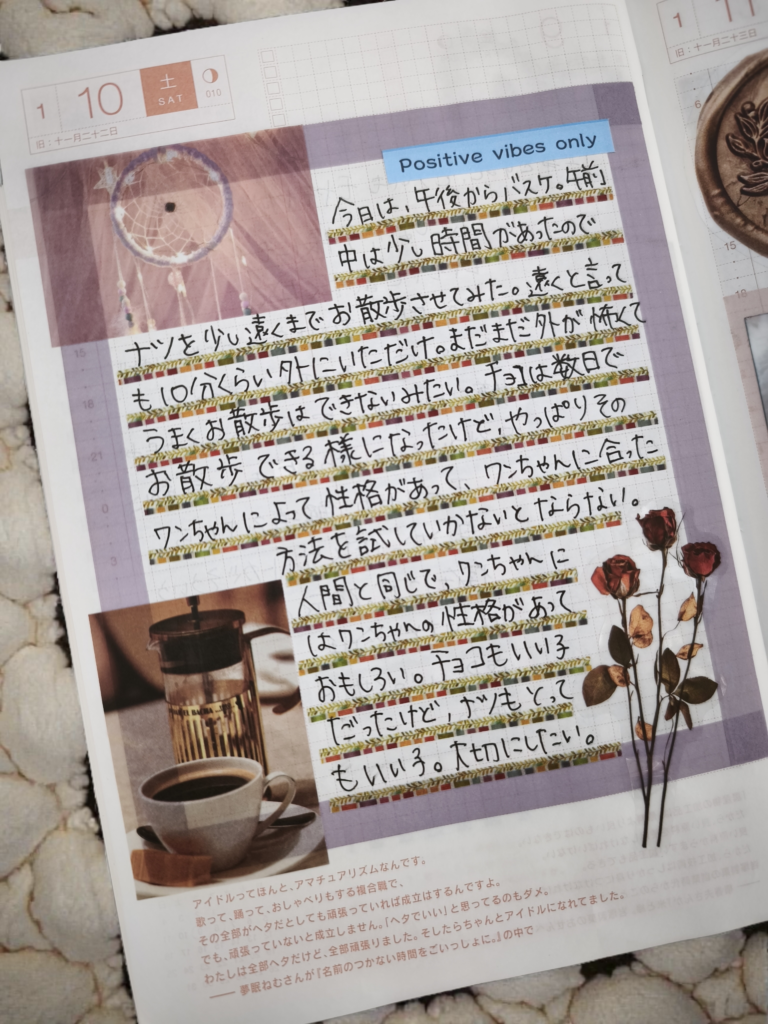 1 10 土 SAT 010
旧:十一月二十二日
1 11
旧:十一月二十三日
Positive vibes only
今日は、午後からバスケ。午前
中は少し時間があったので
ナツを少し遠くまでお散歩させてみた。遠くと言って
も10分くらい外にいただけ。まだまだ外が怖くて
うまくお散歩はできないみたい。チョコは数日で
お散歩できる様になったけど、やっぱりその
ワンちゃんによって性格があって、ワンちゃんに合った
方法を試していかないとならない。
人間と同じで、ワンちゃんに
はワンちゃんの性格があって
おもしろい。チョコもいい子
だったけど、ナツもとって
もいい子。大切にしたい。
15
18
21
0
3
6
15
18
アイドルってほんと、アマチュアリズムなんです。
歌って、踊って、おしゃべりもする複合職で、
その全部がヘタだとしても頑張っていれば成立はするんですよ。
でも、頑張っていないと成立しません。「ヘタでいい」と思ってるのもダメ。
わたしは全部ヘタだけど、全部頑張りました。そしたらちゃんとアイドルになれてました。
—— 夢眠ねむさんが『名前のつかない時間をごいっしょに。』の中で